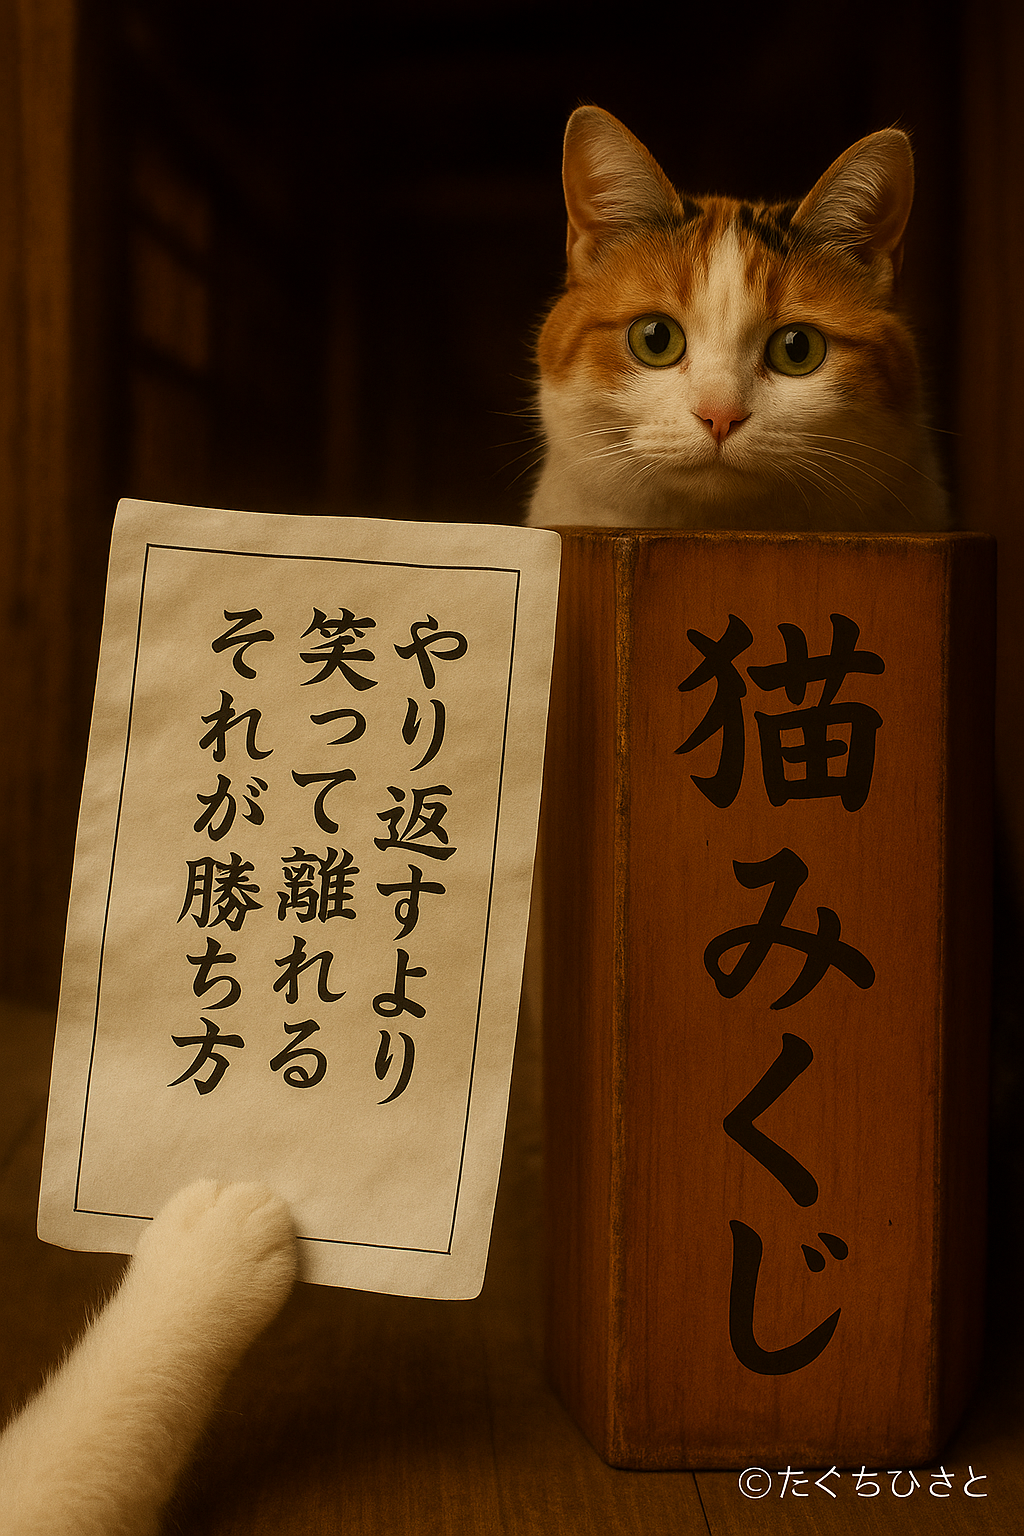 やり返すより
笑って離れる
それが勝ち方
猫みくじ
©たぐちひさと